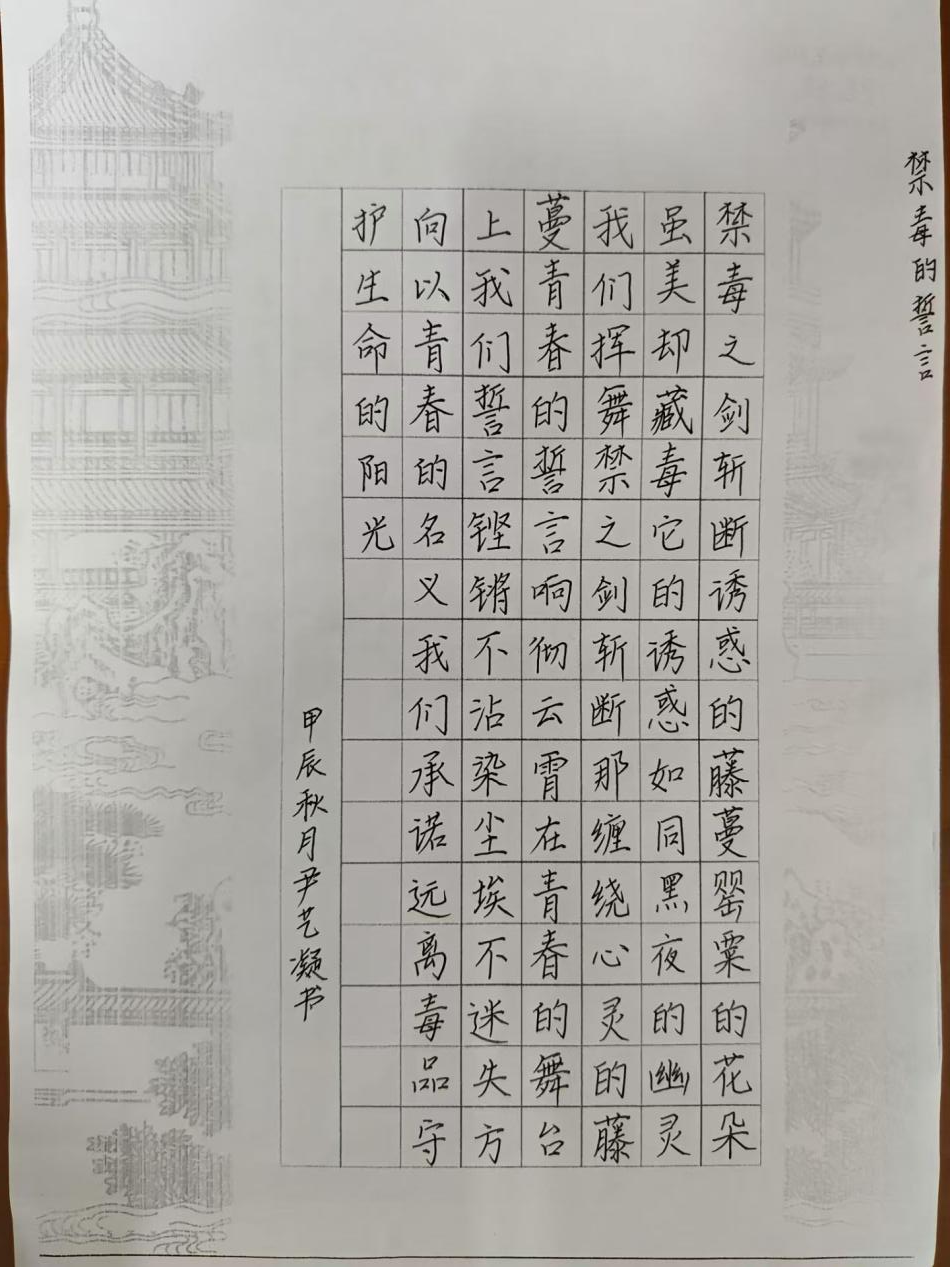 禁毒的誓言
禁毒之剑斩断诱惑的藤蔓罂粟的花朵
虽美却藏毒它的诱惑如同黑夜的幽灵
我们挥舞禁毒之剑斩断那缠绕心灵的藤
蔓青春的誓言响彻云霄在青春的舞台
上我们誓言铿锵不沾染尘埃不迷失方
向以青春的名义我们承诺远离毒品守
护生命的阳光
甲辰秋月尹艺凝书